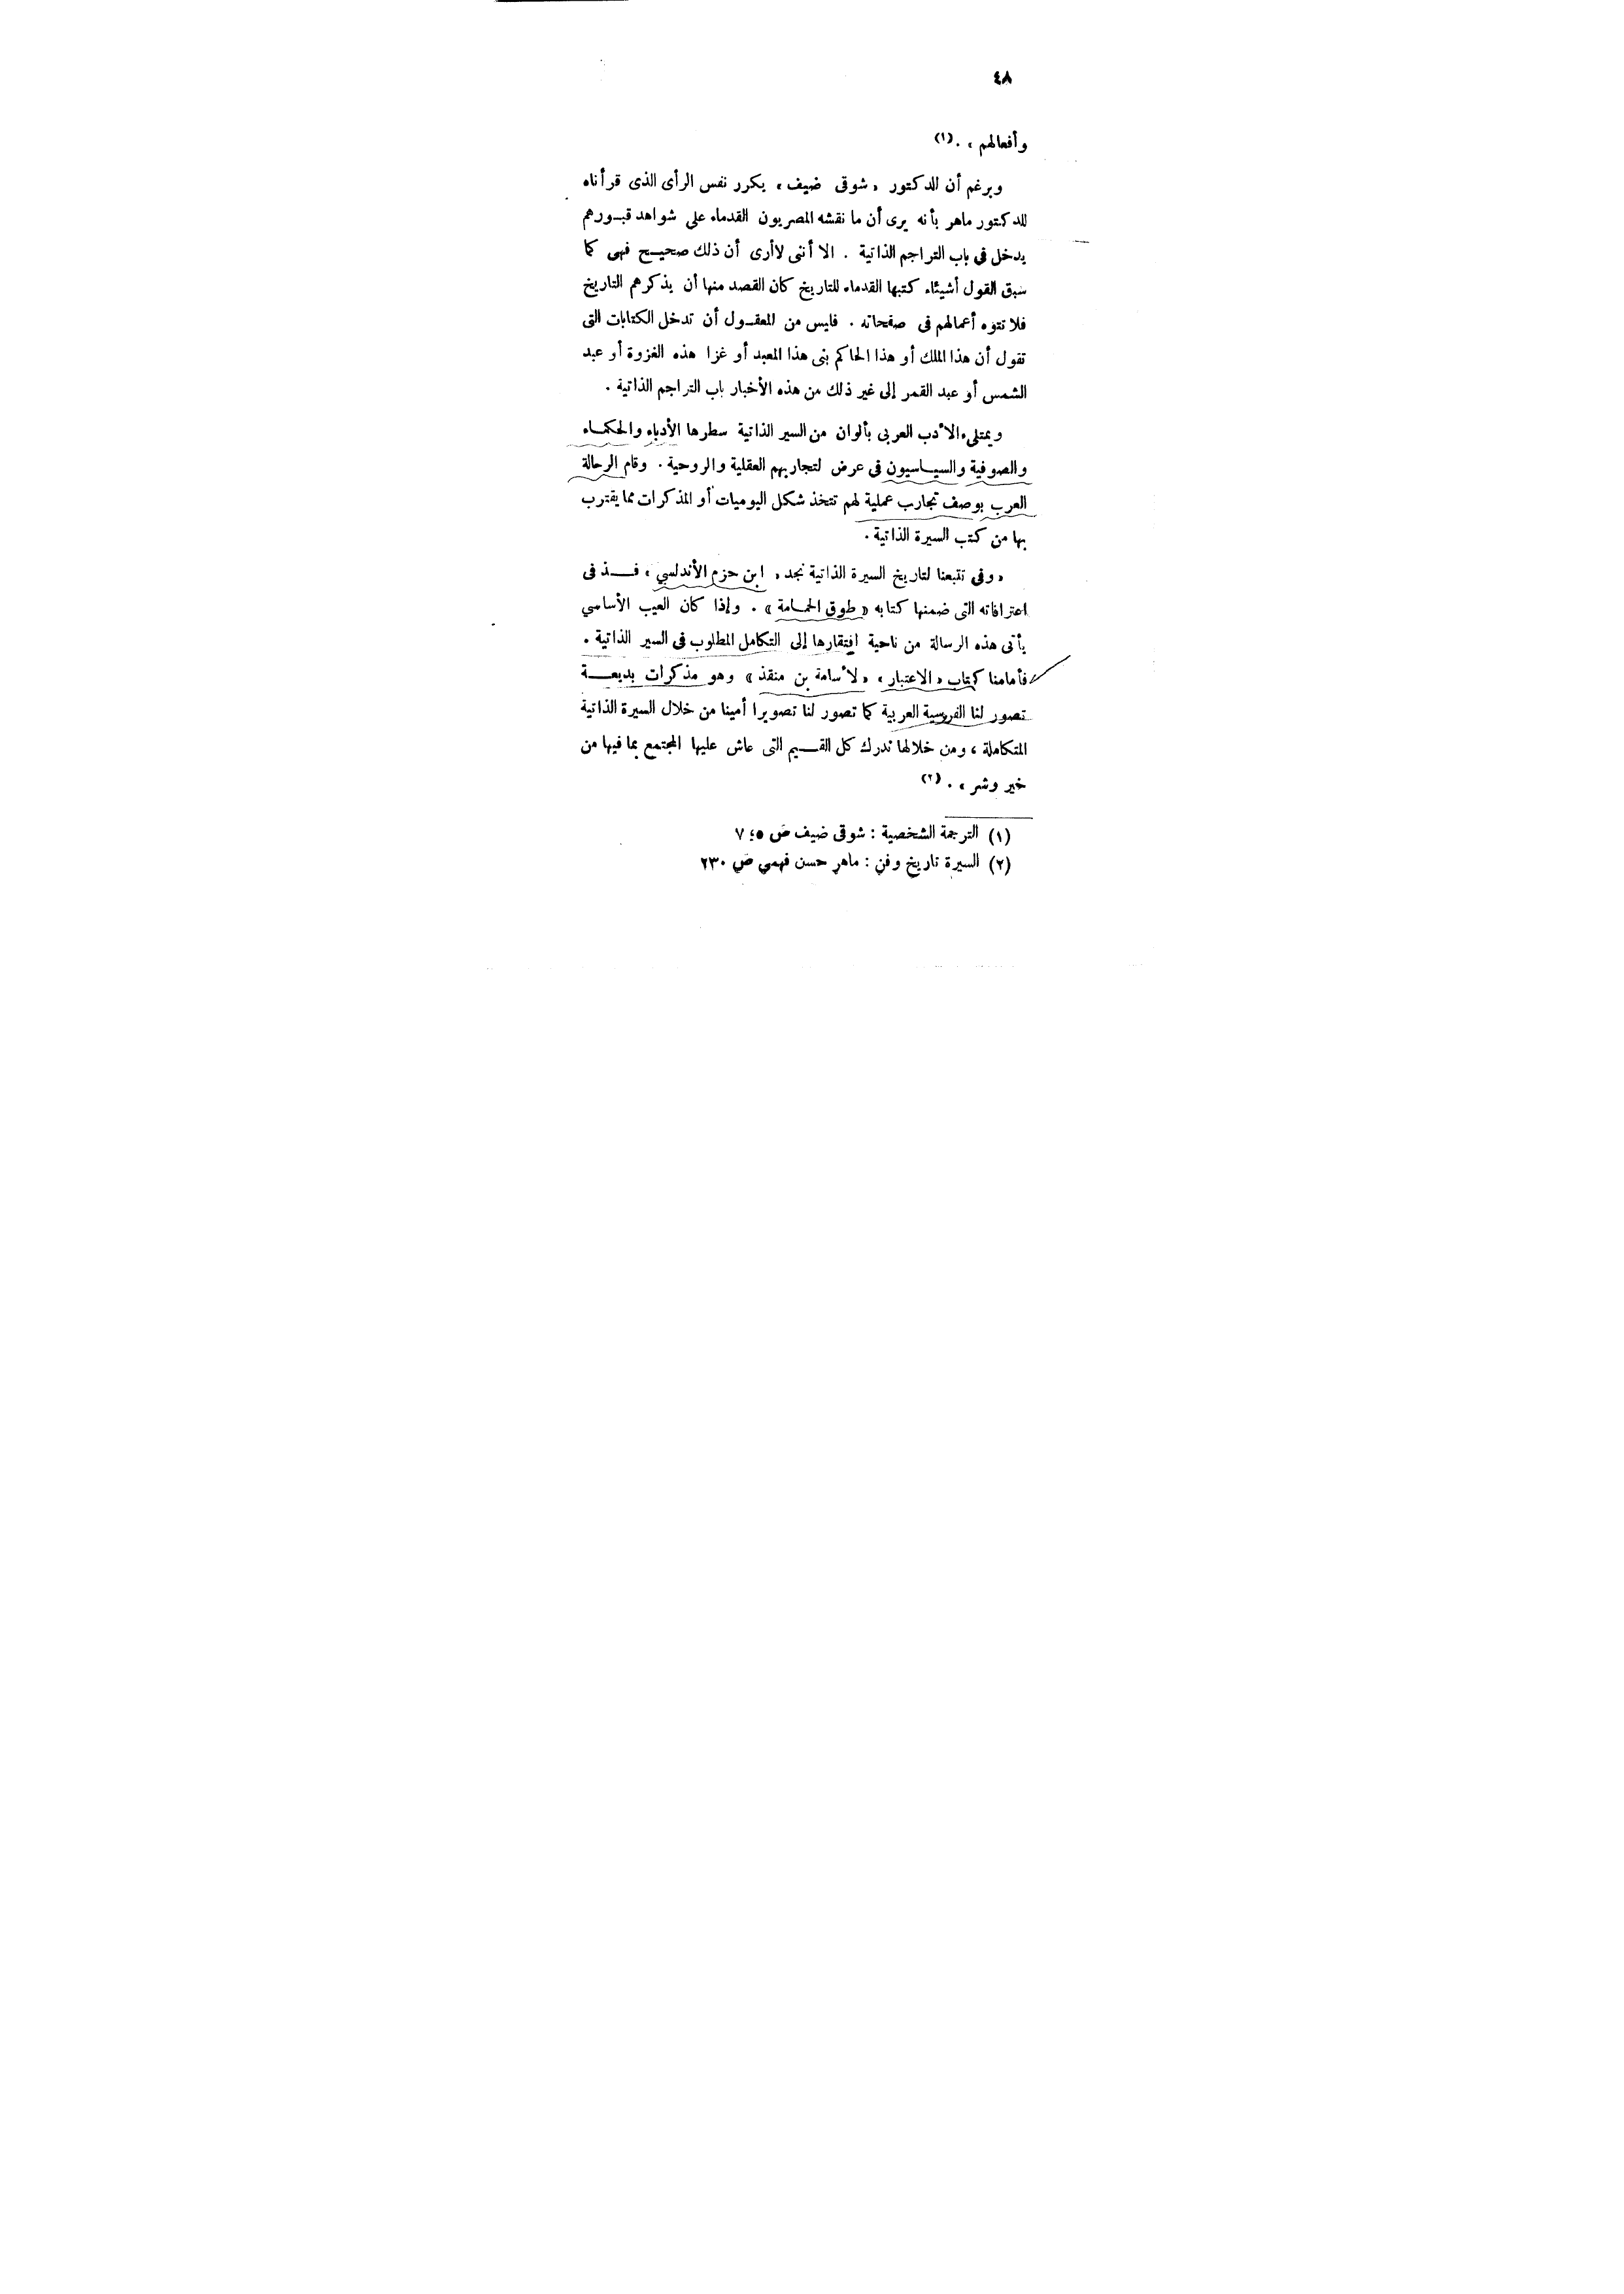 ٤٨
وأفعالهم » . (١)
وبرغم أن الدكتور « شوقى ضيف » يكرر نفس الرأى الذى قرأناه
للدكتور ماهر بأنه يرى أن ما نقشه المصريون القدماء على شواهد قبـورهم
يدخل فى باب التراجم الذاتية . الا أننى لاأرى أن ذلك صحيـح فهى كما
سبق القول أشيئاء كتبها القدماء للتاريخ كان القصد منها أن يذكرهم التاريخ
فلا تتوه أعمالهم فى صفحاته . فليس من المعقـول أن تدخل الكتابات التى
تقول أن هذا الملك أو هذا الحاكم بنى هذا المعبد أو غزا هذه الغزوة أو عبد
الشمس أو عبد القمر إلى غير ذلك من هذه الأخبار باب التراجم الذاتية .
ويمتلىء الأدب العربى بألوان من السير الذاتية سطرها الأدباء والحكمـاء
والصوفية والسيـاسيون فى عرض لتجاربهم العقلية والروحية . وقام الرحالة
العرب بوصف تجارب عملية لهم تتخذ شكل اليوميات أو المذكرات مما يقترب
بها من كتب السيرة الذاتية .
« وفى تتبعنا لتاريخ السيرة الذاتية نجد « ابن حزم الأندلسي » فـــذ فى
اعترافاته التى ضمنها كتابه « طوق الحمـامة » . وإذا كان العيب الأساسي
يأتى هذه الرسالة من ناحية افتقارها إلى التكامل المطلوب فى السير الذاتية .
فأمامنا كتاب « الاعتبار » « لأسامة بن منقذ » وهو مذكرات بديعـــة
تصور لنا الفروسية العربية كما تصور لنا تصويرا أمينا من خلال السيرة الذاتية
المتكاملة ، ومن خلالها ندرك كل القـــيم التى عاش عليها المجتمع بما فيها من
خير وشر » . (٢)
(١) الترجمة الشخصية : شوقى ضيف ص ٥؛ ٧
(٢) السيرة تاريخ وفن : ماهر حسن فهمي ص ٢٣٠